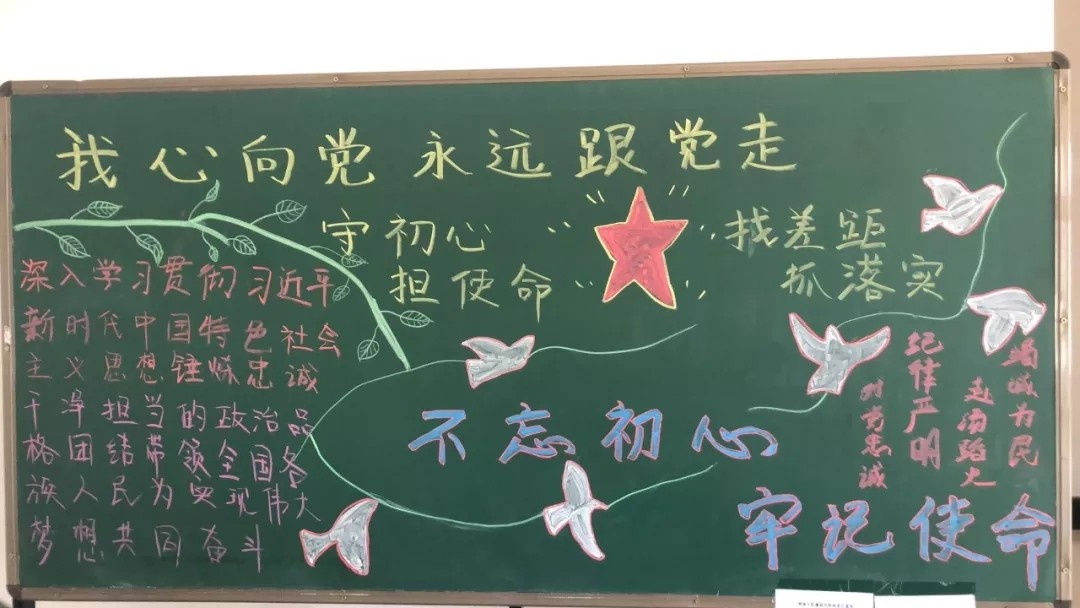 我心向党 永远跟党走
守初心
担使命
找差距
抓落实
深入学习贯彻习近平
新时代中国特色社会
主义思想锤炼忠诚
干净担当的政治品
格团结带领全国各
族人民为实现伟大
梦想共同奋斗
不忘初心
牢记使命
竭诚为民
赴汤蹈火
纪律严明
对党忠诚